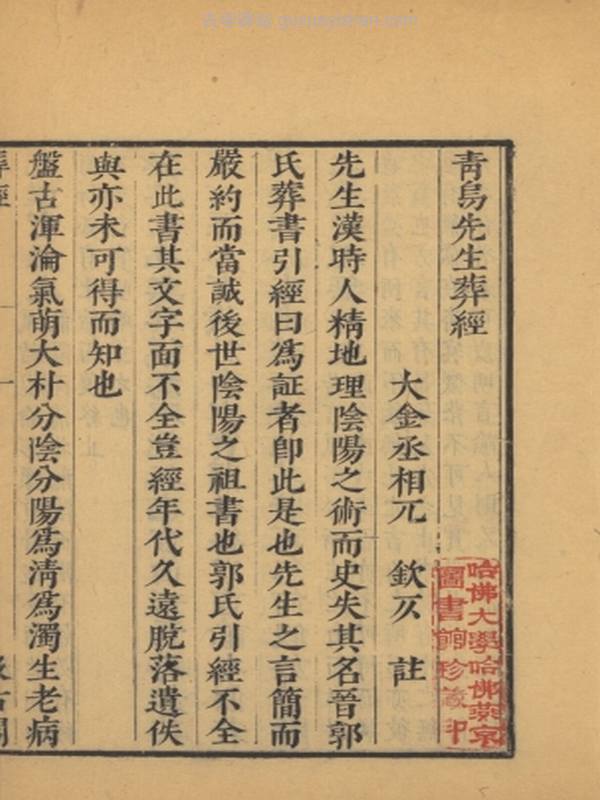 青烏先生葬經
大金丞相兀 欽仄 註
先生漢時人精地理陰陽之術而史失其名晉郭
氏葬書引經曰為証者即此是也先生之言簡而
嚴約而當誠後世陰陽之祖書也郭氏引經不全
在此書其文字面不全豈經年代久遠脫落遺佚
與亦未可得而知也
盤古渾淪氣萌大朴分陰分陽為清為濁生老病
哈佛大學哈佛燕京
圖書館珍藏印